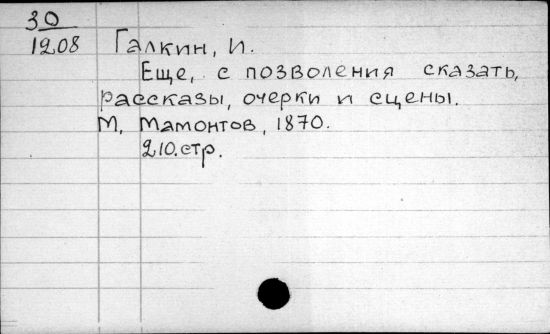 30
1208
Галкин, И.
Еще, с позволения сказать,
рассказы, очерки и сцены.
М, Мамонтов, 1870.
210.стр.